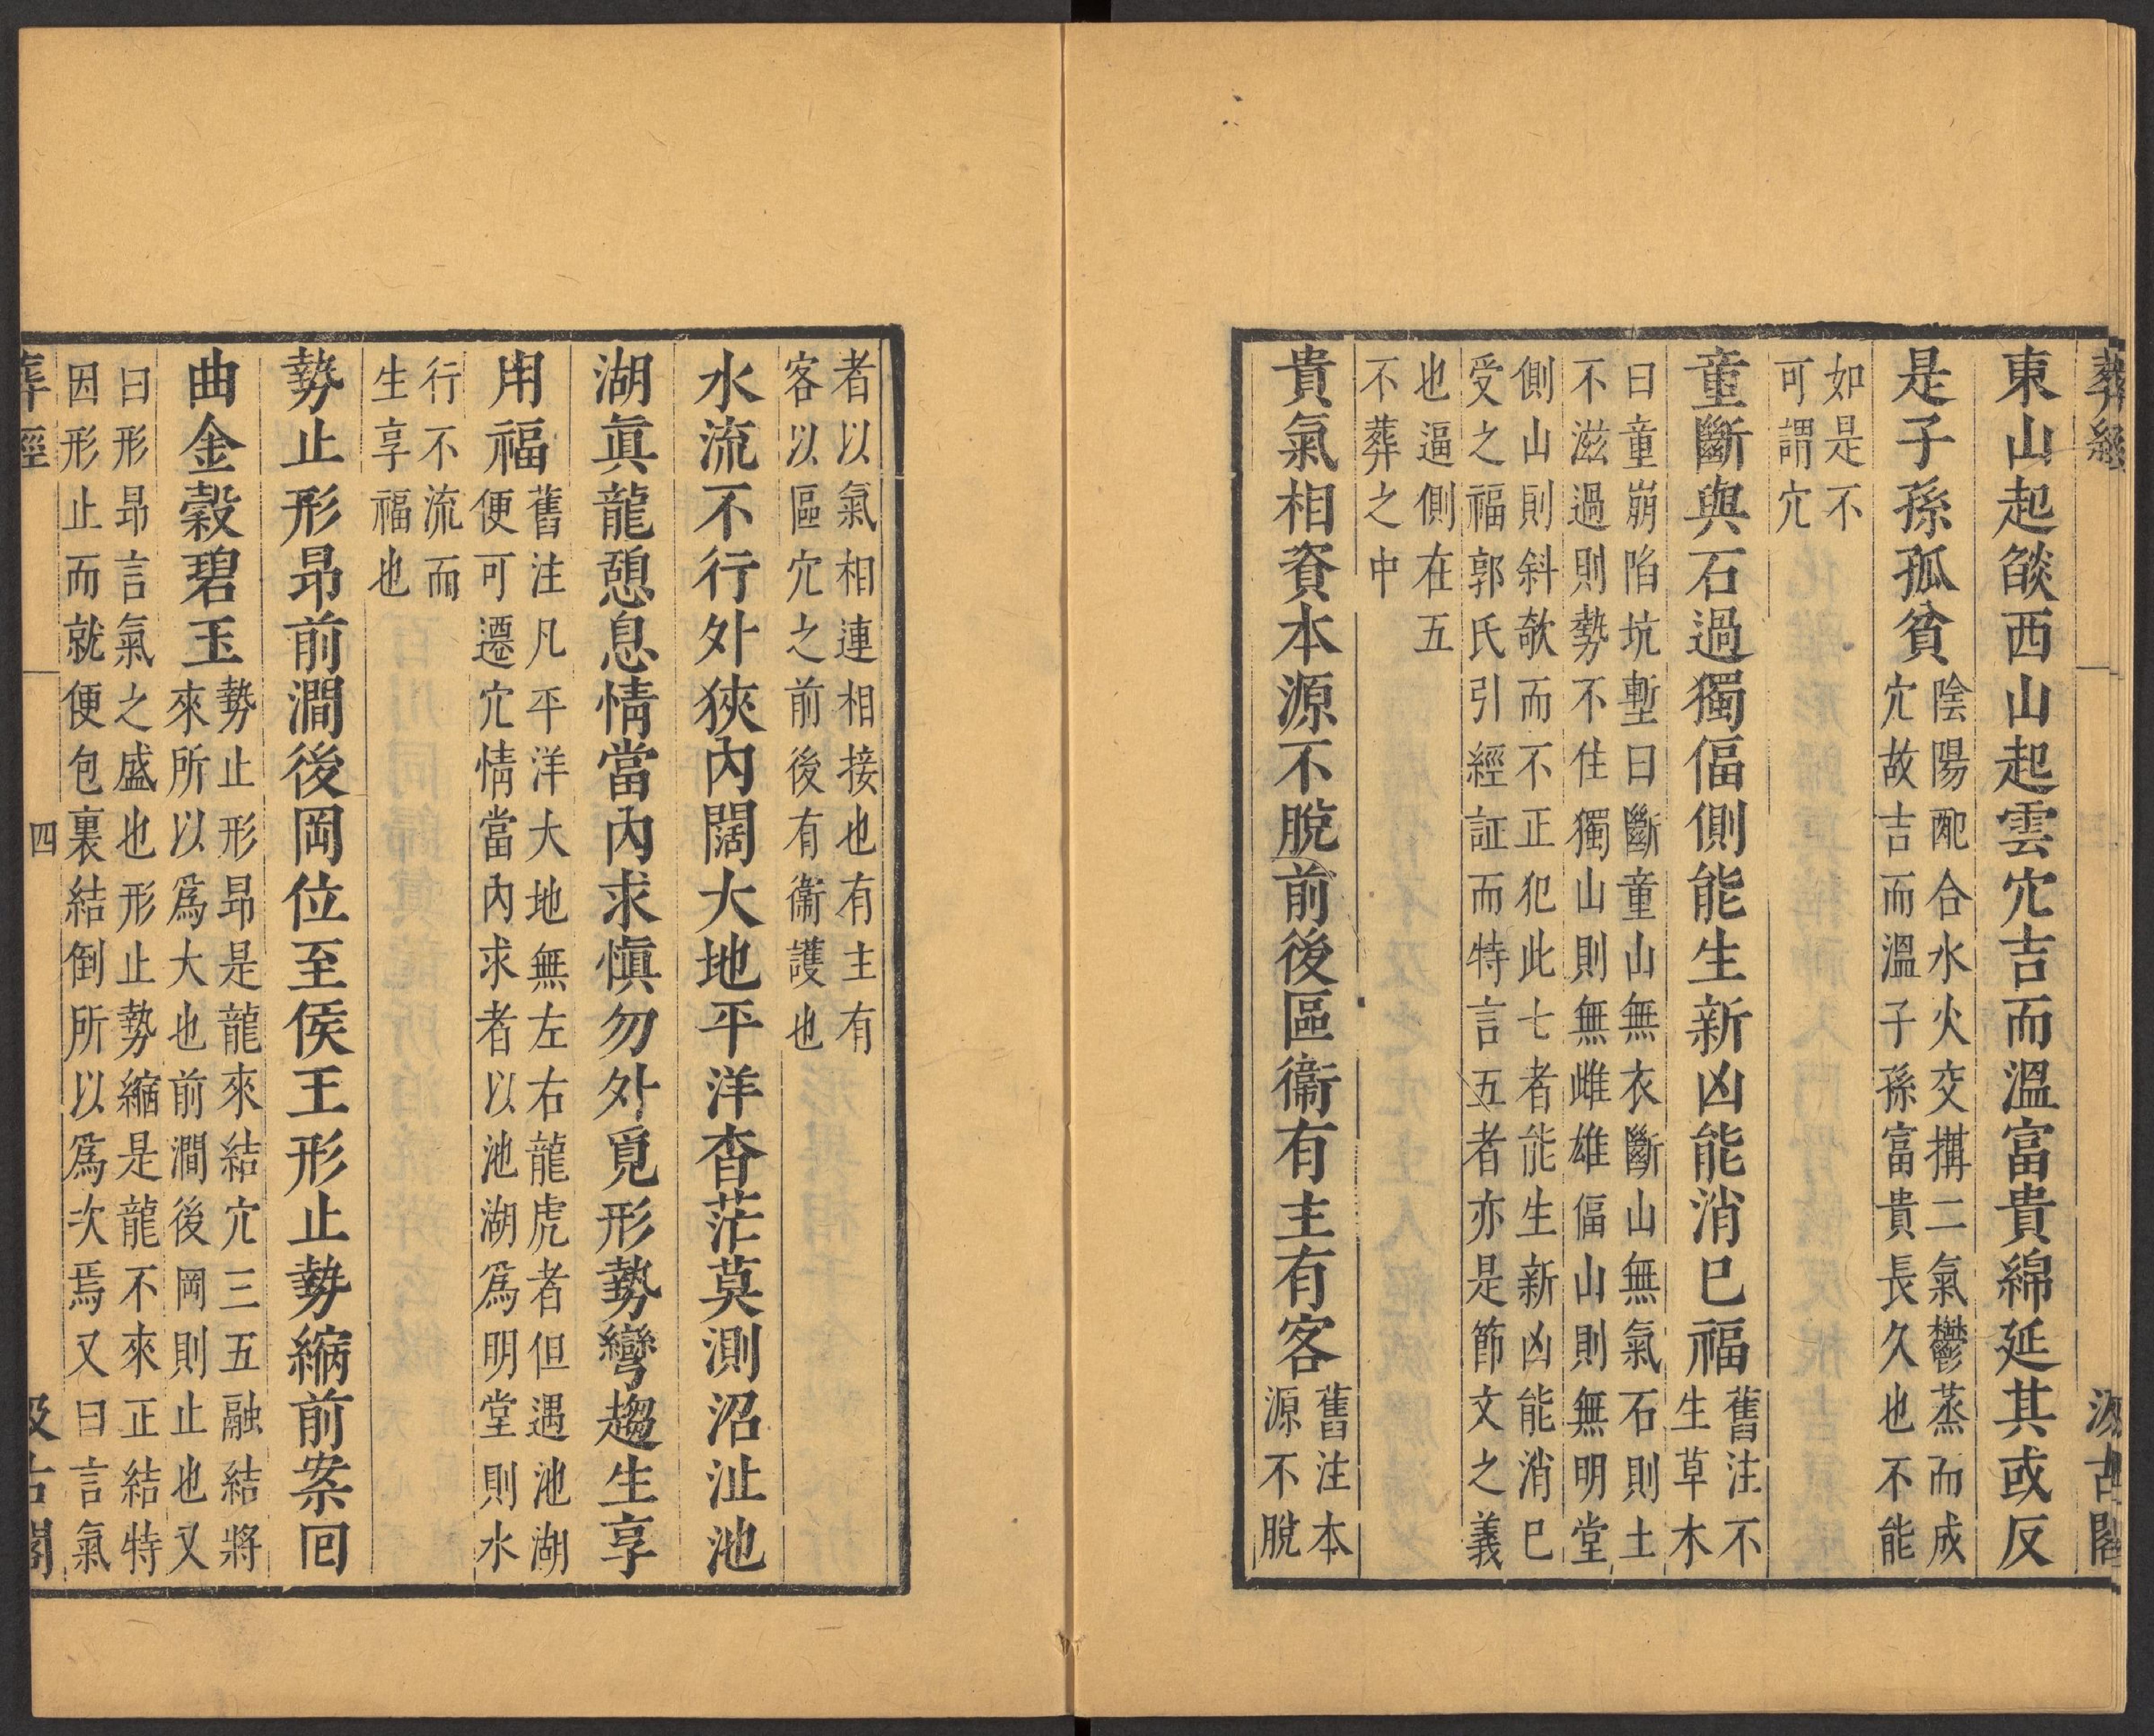 葬經
汲古閣
東山起燄西山起雲穴吉而溫富貴綿延其或反
是子孫孤貧
陰陽配合水火交搆二氣鬱蒸而成
穴故吉而溫子孫富貴長久也不能
如是不
可謂穴
童斷與石過獨偪側能生新凶能消已福
舊注不
生草木
曰童崩陷坑塹曰斷童山無衣斷山無氣石則土
不滋過則勢不住獨山則無雌雄偪山則無明堂
側山則斜欹而不正犯此七者能生新凶能消已
受之福郭氏引經証而特言五者亦是節文之義
也逼側在五
不葬之中
貴氣相資本源不脫前後區衞有主有客
舊注本
源不脫
者以氣相連相接也有主有
客以區穴之前後有衞護也
水流不行外狹內闊大地平洋杳茫莫測沼沚池
湖眞龍憩息情當內求愼勿外覓形勢彎趨生享
用福
舊注凡平洋大地無左右龍虎者但遇池湖
便可遷穴情當內求者以池湖爲明堂則水
行不流而
生享福也
勢止形昂前澗後岡位至侯王形止勢縮前案回
曲金穀碧玉
勢止形昂是龍來結穴三五融結將
來所以爲大也前澗後岡則止也又
曰形昂言氣之盛也形止勢縮是龍不來正結特
因形止而就便包裏結倒所以爲次焉又曰言氣
葬經
四
汲古閣